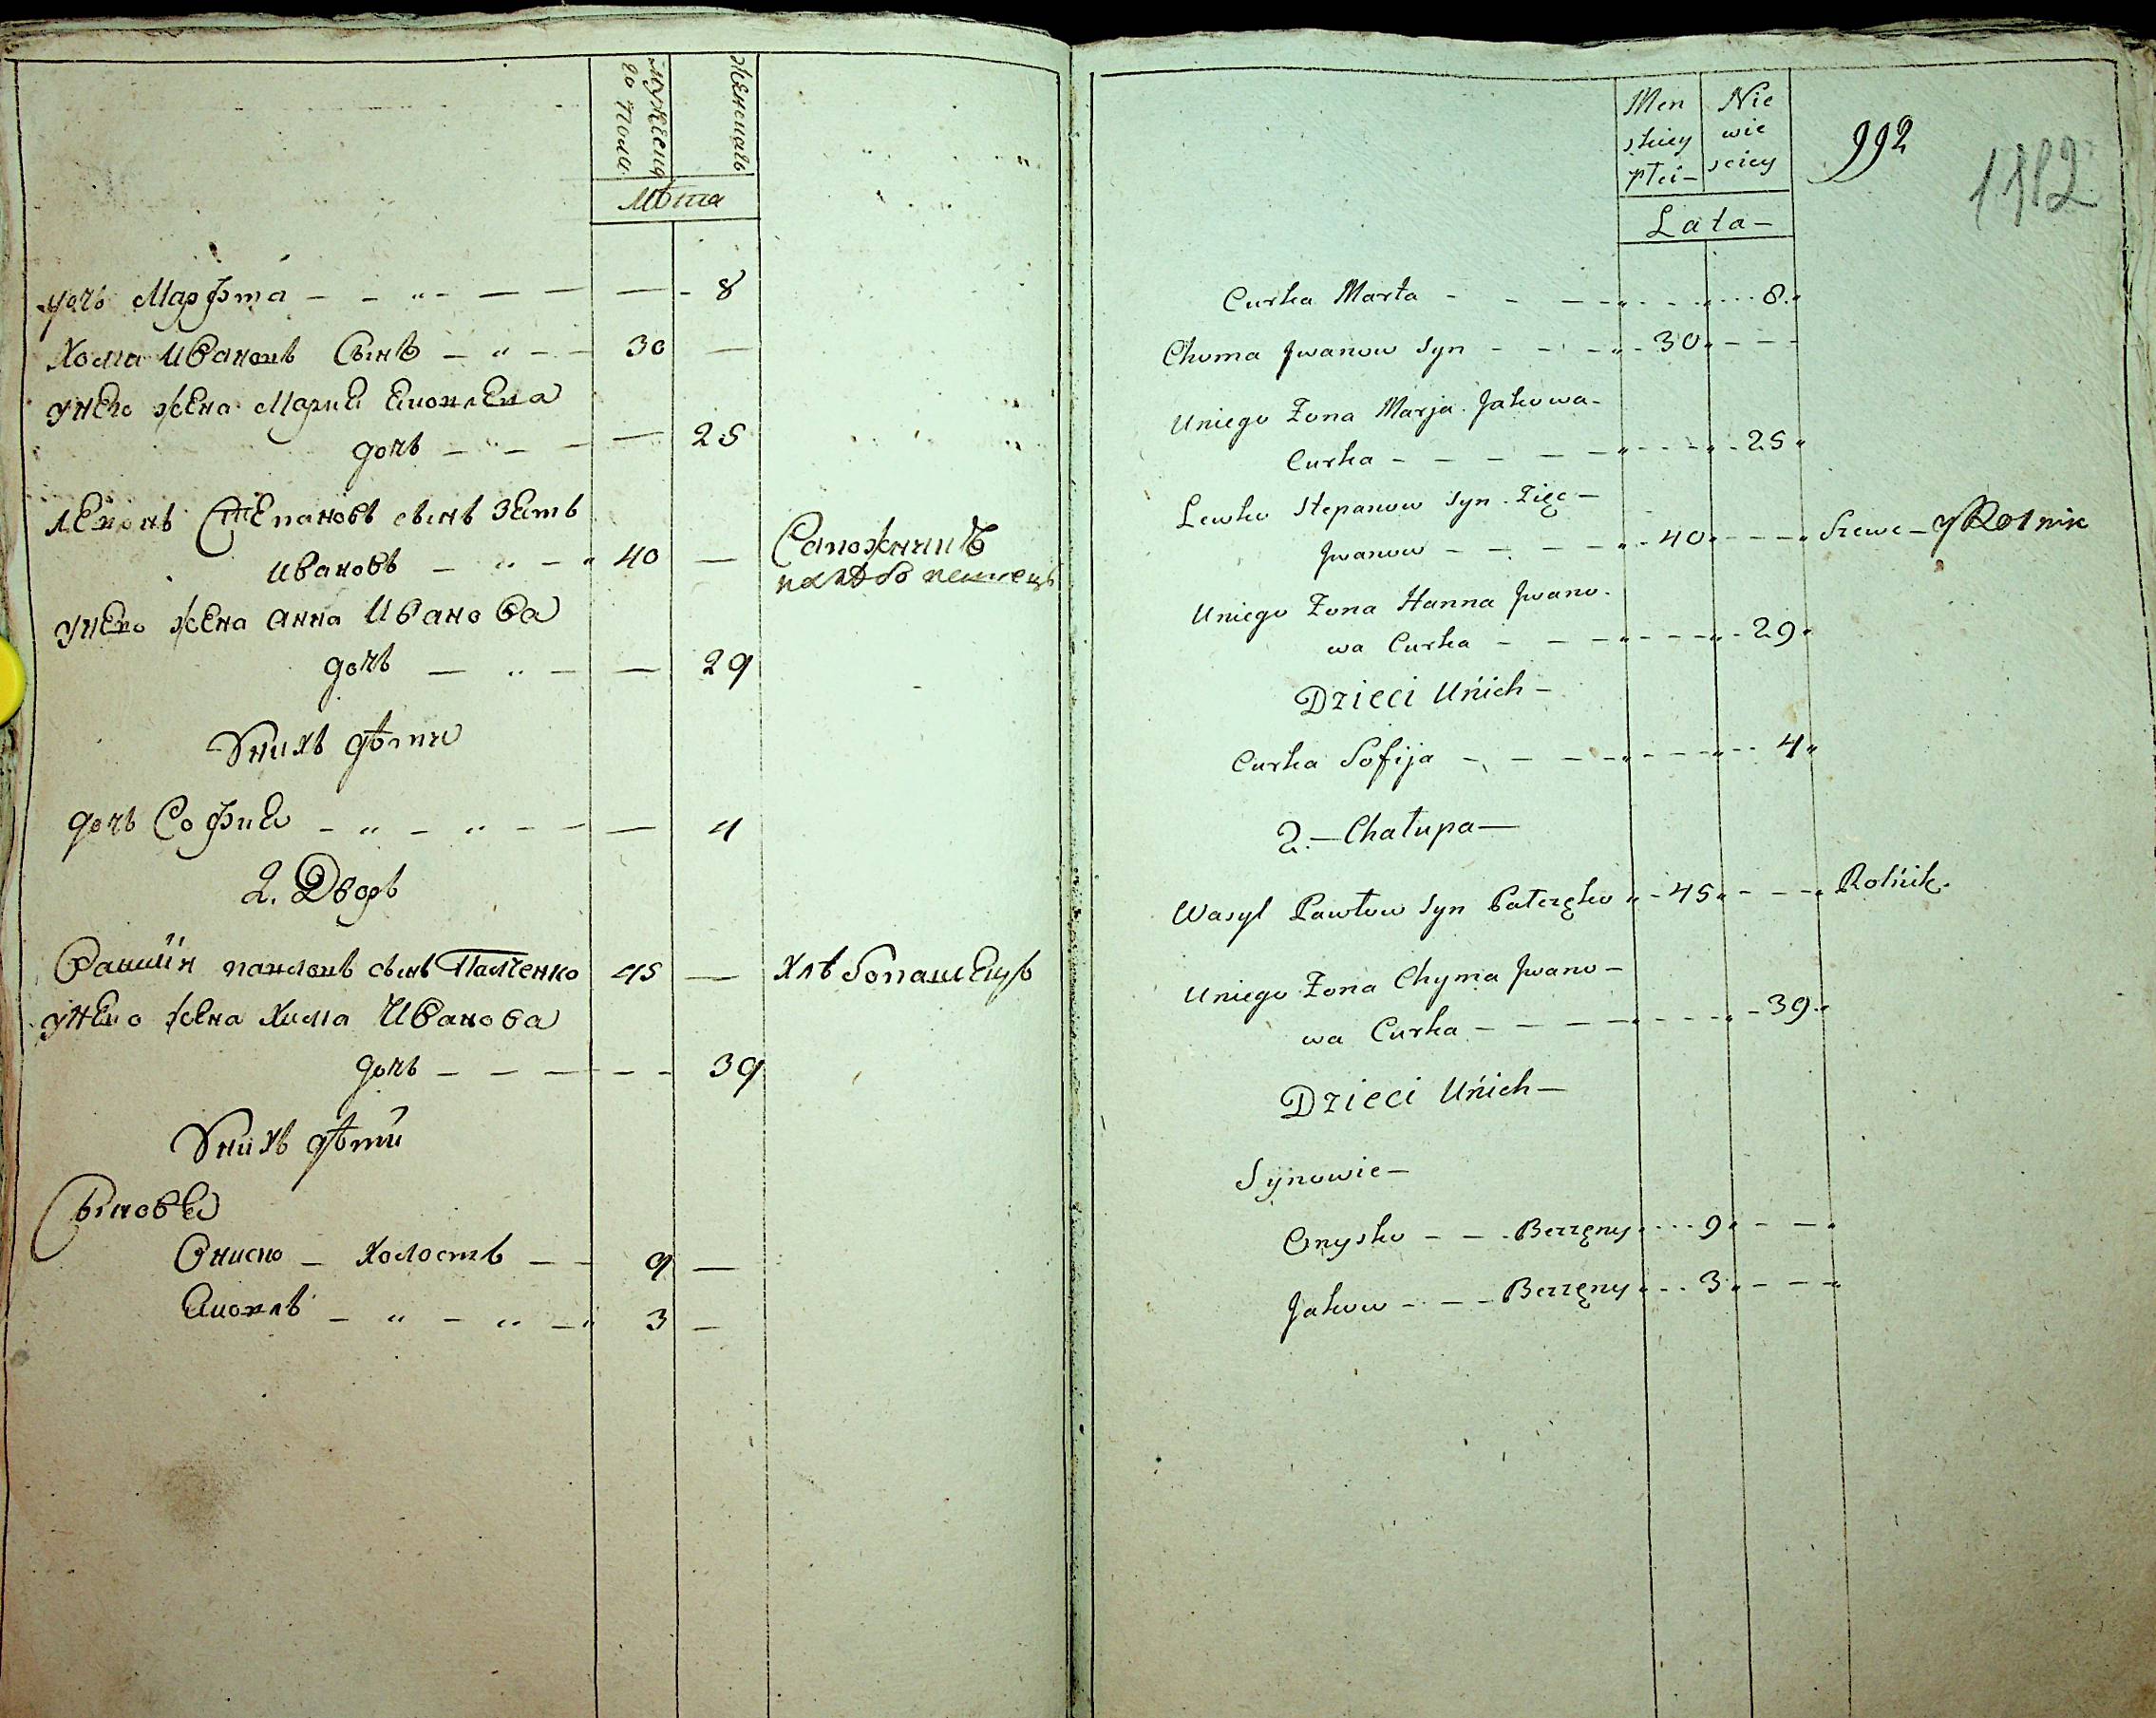 мужеска
го пола
женскаго
Лѣта
дочь Марфта 8
Хома Ивановъ Сынъ 30
унего жена Мария Яковлева
дочь 25
Левконъ Степановъ сынъ Зять
Ивановъ 40 Сапожникъ
и хлѣбопашецъ
унего жена Анна Иванова
дочь 29
Унихъ дѣти
дочь София 4
2. Дворъ
Василий павловъ сынъ Палченко 45 Хлѣбопашецъ
унего жена Хима Иванова
дочь 39
Унихъ дѣти
Сыновья
Ониско – Холостъ 9
Яковъ 3
Men
skiey
Płci –
Nie
wie
sciey
992
1182
Lata –
Curka Marta 8
Choma Jwanow Syn 30
Uniego Żona Marja Jakowa –
Curka 25
Lewko Stepanow Syn Zięc –
Jwanow 40 Szewc – y Rolnik
Uniego Żona Hanna Jwano –
wa Curka 29
Dzieci Unich –
Curka Sofija 4
2. – Chałupa –
Wasyl Pawłow Syn Palczęko 45 Rolnik
Uniego Żona Chyma Jwano –
wa Curka 39
Dzieci Unich –
Synowie –
Onysko – – Bezzęny 9
Jakow – – – Bezzęny 3